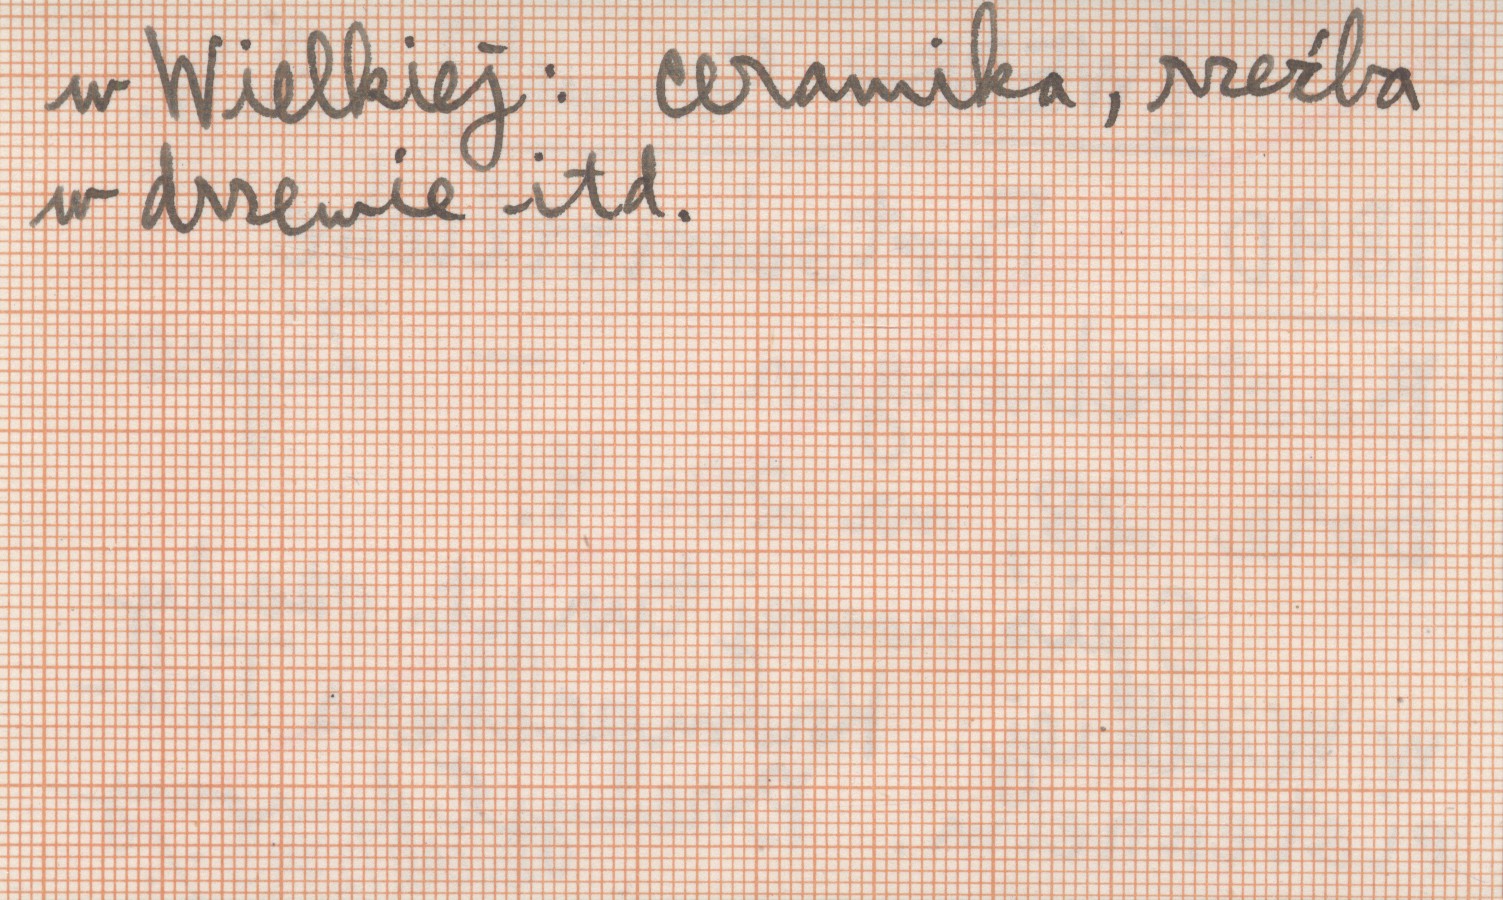 w Wielkiej: ceramika, rzeźba
w drzewie itd.